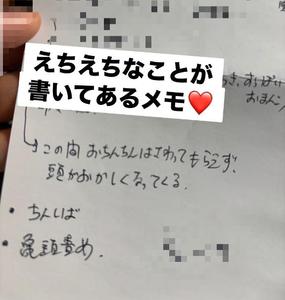 えちえちなことが
書いてあるメモ❤️
おまんこ
この間 おちんちんはさわってもらえず、
頭がおかしくなってくる。
・ちんしば
・亀頭責め.